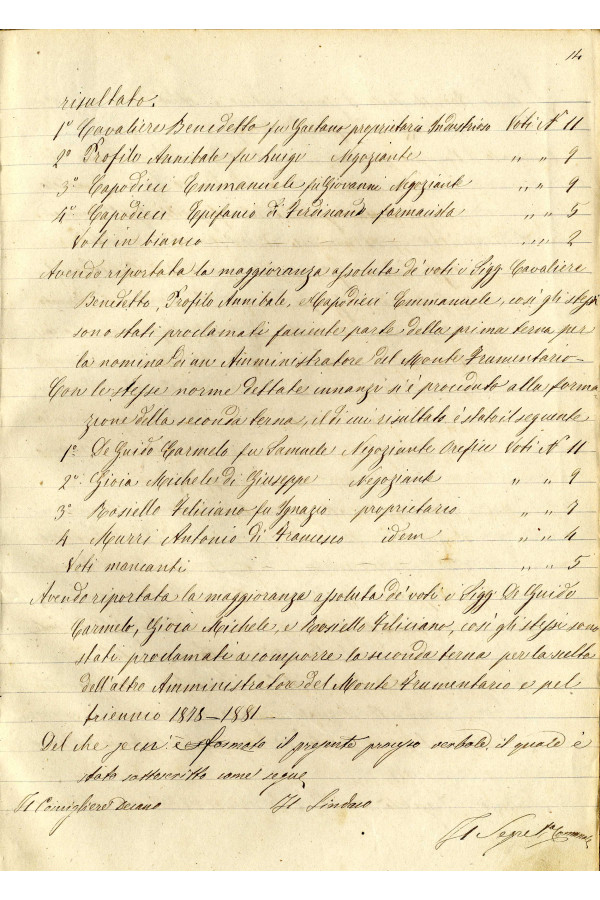 14
risultato.
1º Cavaliere Benedetto fu Gaetano proprietario Industrioso Voti Nº 11
2º Profilo Annibale fu Luigi Negoziante " " 9
3º Capodieci Emmanuele fu Giovanni Negoziante " " 9
4º Capodieci Epifanio di Ferdinando farmacista " " 5
Voti in bianco " " 2
Avendo riportata la maggioranza assoluta de' voti i Sigg. Cavaliere
Benedetto, Profilo Annibale, e Capodieci Emmanuele, così gli stessi
sono stati proclamati facente parte della prima terna per
la nomina di un Amministratore del Monte Frumentario—
Con le stesse norme dettate innanzi si è proceduto alla forma-
zione della seconda terna, il di cui risultato è stato il seguente
1º De Guido Carmelo fu Samuele Negoziante Orefice Voti Nº 11
2º Gioia Michele di Giuseppe Negoziante " " 9
3º Rosiello Feliciano fu Ignazio proprietario " " 7
4 Murri Antonio di Francesco idem " " 4
Voti mancanti " " 5
Avendo riportata la maggioranza assoluta de' voti i Sigg. De Guido
Carmelo, Gioia Michele, e Rosiello Feliciano, così gli stessi sono
stati proclamati a comporre la seconda terna per la scelta
dell'altro Amministratore del Monte Frumentario e pel
triennio 1878—1881—
Del che si è formato il presente processo verbale, il quale è
stato sottoscritto come segue
Il Consigliere Decano Il Sindaco
Il Segret.º Comunale